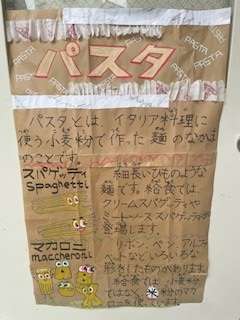 PASTA PASTA PASTA
パスタ
パスタとは イタリア料理に
使う小麦粉で作った麺のなかま
のことです。
スパゲッティ
Spaghetti
細長いひものような
麺です。給食では、
クリームスパゲッティや
ミートソーススパゲッティが
登場します。
マカロニ
maccheroni
リボン、ペン、アルファ
ベットなどいろいろな
形をしたものがあります。
給食では、小麦粉
ではなく、米粉のマカ
ロニを使っています。